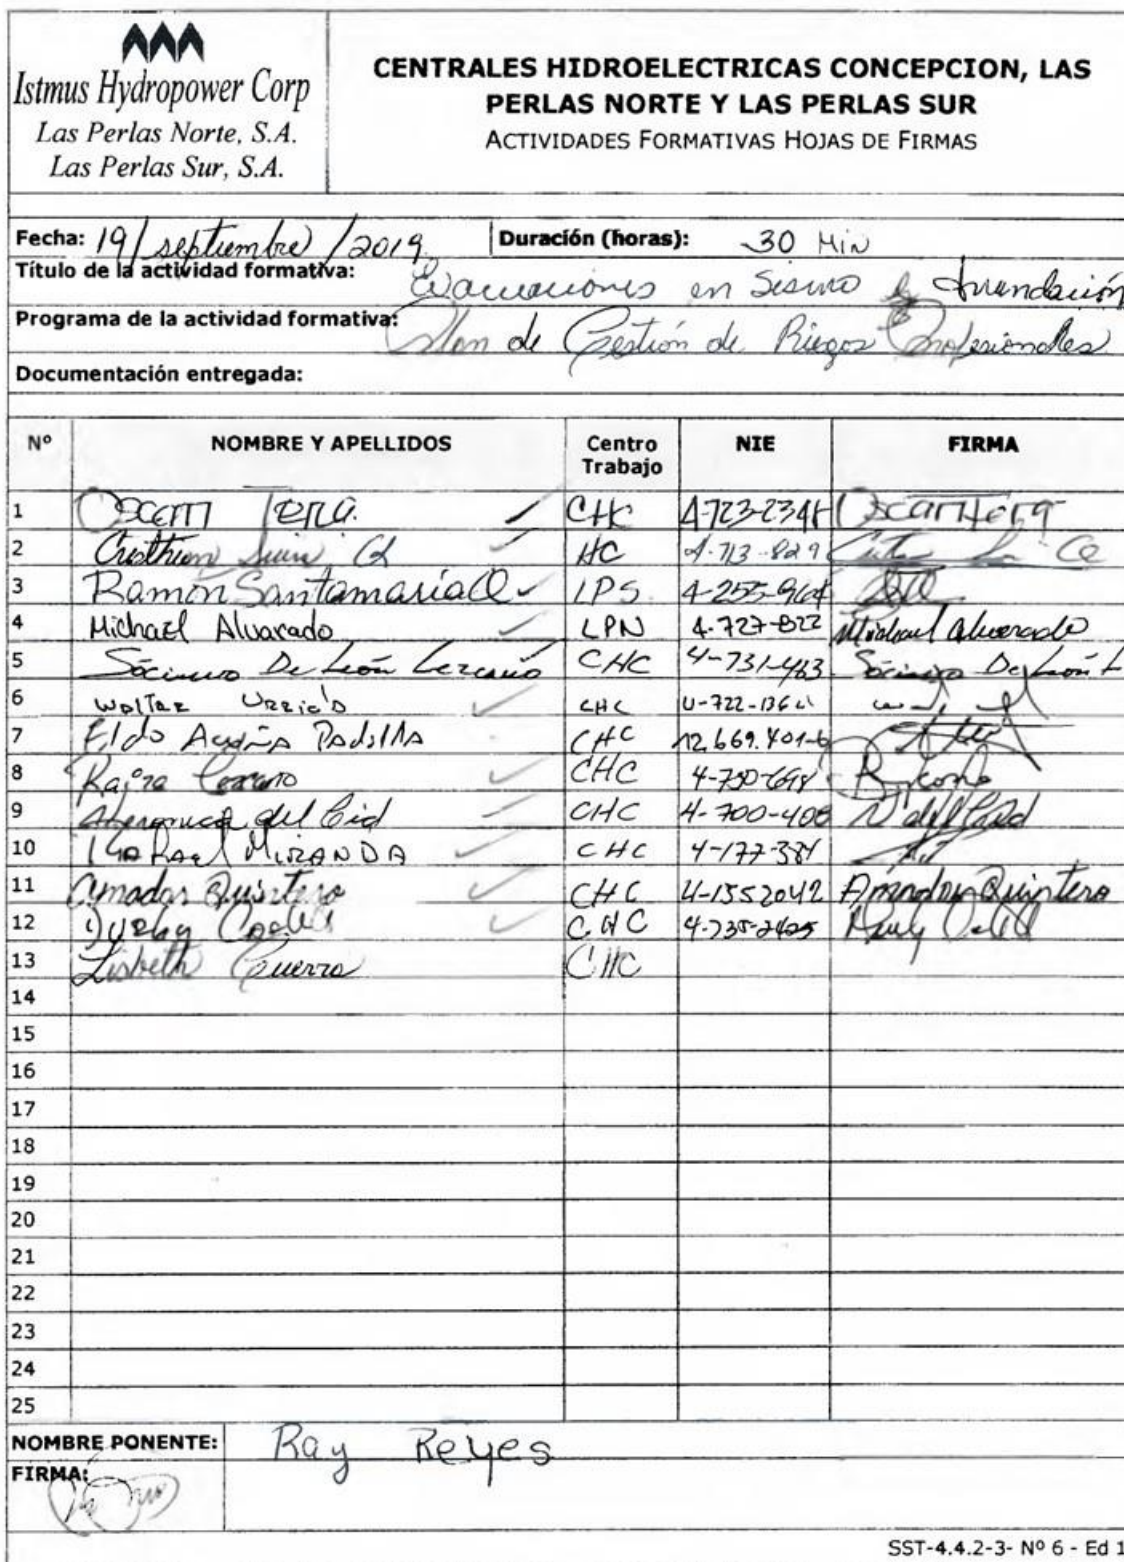 Istmus Hydropower Corp
Las Perlas Norte, S.A.
Las Perlas Sur, S.A.
CENTRALES HIDROELECTRICAS CONCEPCION, LAS
PERLAS NORTE Y LAS PERLAS SUR
ACTIVIDADES FORMATIVAS HOJAS DE FIRMAS
Fecha: 19/septiembre/2019 Duración (horas): 30 Min
Título de la actividad formativa: Evacuaciones en Sismo e Inundación
Programa de la actividad formativa: Plan de Gestión de Riegos Profesionales
Documentación entregada:
Nº NOMBRE Y APELLIDOS Centro Trabajo NIE FIRMA
1 CHC 4-723-2348
2 HC 4-713-829
3 Ramón Santamaria Q LPS 4-255-964
4 Michael Alvarado LPN 4-727-822 Michael Alvarado
5 De León Lezcano CHC 4-731-463 De León L
6 Walter CHC
7 Eldo Acuña Padilla CHC
8 CHC
9 del Cid CHC 4-700-408
10 Rafael MIRANDA CHC 4-177-381
11 Amador Quintero CHC 4-1552042 Amador Quintero
12 CHC
13 Lisbeth Guerra CHC
14
15
16
17
18
19
20
21
22
23
24
25
NOMBRE PONENTE: Ray Reyes
FIRMA:
SST-4.4.2-3- Nº 6 - Ed 1